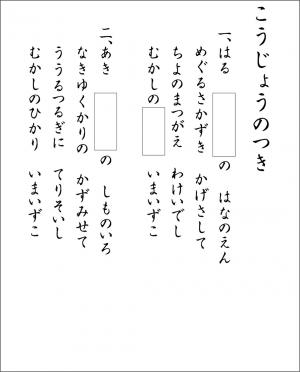 こうじょうのつき
一、はる の はなのえん
めぐるさかずき かげさして
ちよのまつがえ わけいでし
むかしの いまいずこ
二、あき の しものいろ
なきゆくかりの かずみせて
ううるつるぎに てりそいし
むかしのひかり いまいずこ